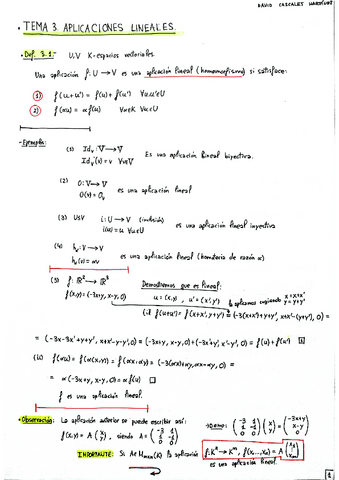 DAVID CASCALES MARTÍNEZ
• TEMA 3. APLICACIONES LINEALES.
• Def. 3.1.- U,V K-espacios vectoriales.
Una aplicación f: U → V es una aplicación lineal (homomorfismo) si satisface:
1) f(u+u') = f(u) + f(u') ∀u,u'∈U
2) f(αu) = αf(u) ∀α∈K ∀u∈U
- Ejemplos:
(1) Id_V : V → V
Id_V(v) = v ∀v∈V
Es una aplicación lineal biyectiva.
(2) O: V → V
O(v) = O_v
es una aplicación lineal
(3) U≤V i: U → V (inclusión)
i(u) = u ∀u∈U
es una aplicación lineal inyectiva
(4) h_α: V → V
h_α(v) = αv
es una aplicación lineal (homotecia de razón α)
(5) f: ℝ² → ℝ³
f(x,y) = (-3x+y, x-y, 0)
Demostremos que es lineal:
u = (x,y), u' = (x',y')
(i) f(u+u') = f(x+x', y+y') = (-3(x+x')+y+y', x+x'-(y+y'), 0) =
= (-3x-3x'+y+y', x+x'-y-y', 0) = (-3x+y, x-y, 0) + (-3x'+y', x'-y', 0) = f(u) + f(u')
(ii) f(αu) = f(α(x,y)) = f(αx, αy) = (-3(αx)+αy, αx-αy, 0) =
= α(-3x+y, x-y, 0) = αf(u)
f es una aplicación lineal.
• Observación: La aplicación anterior se puede escribir así:
f(x,y) = A (x y), siendo A = (-3 1 1 -1 0 0)
(-3 1 1 -1 0 0) (x y) = (-3x+y x-y 0)
IMPORTANTE: Si A∈M_mxn(K) la aplicación f: Kⁿ → Kᵐ, f(x₁,...,xₙ) = A (x₁ ⋮ xₙ)
es una aplicación lineal.
1